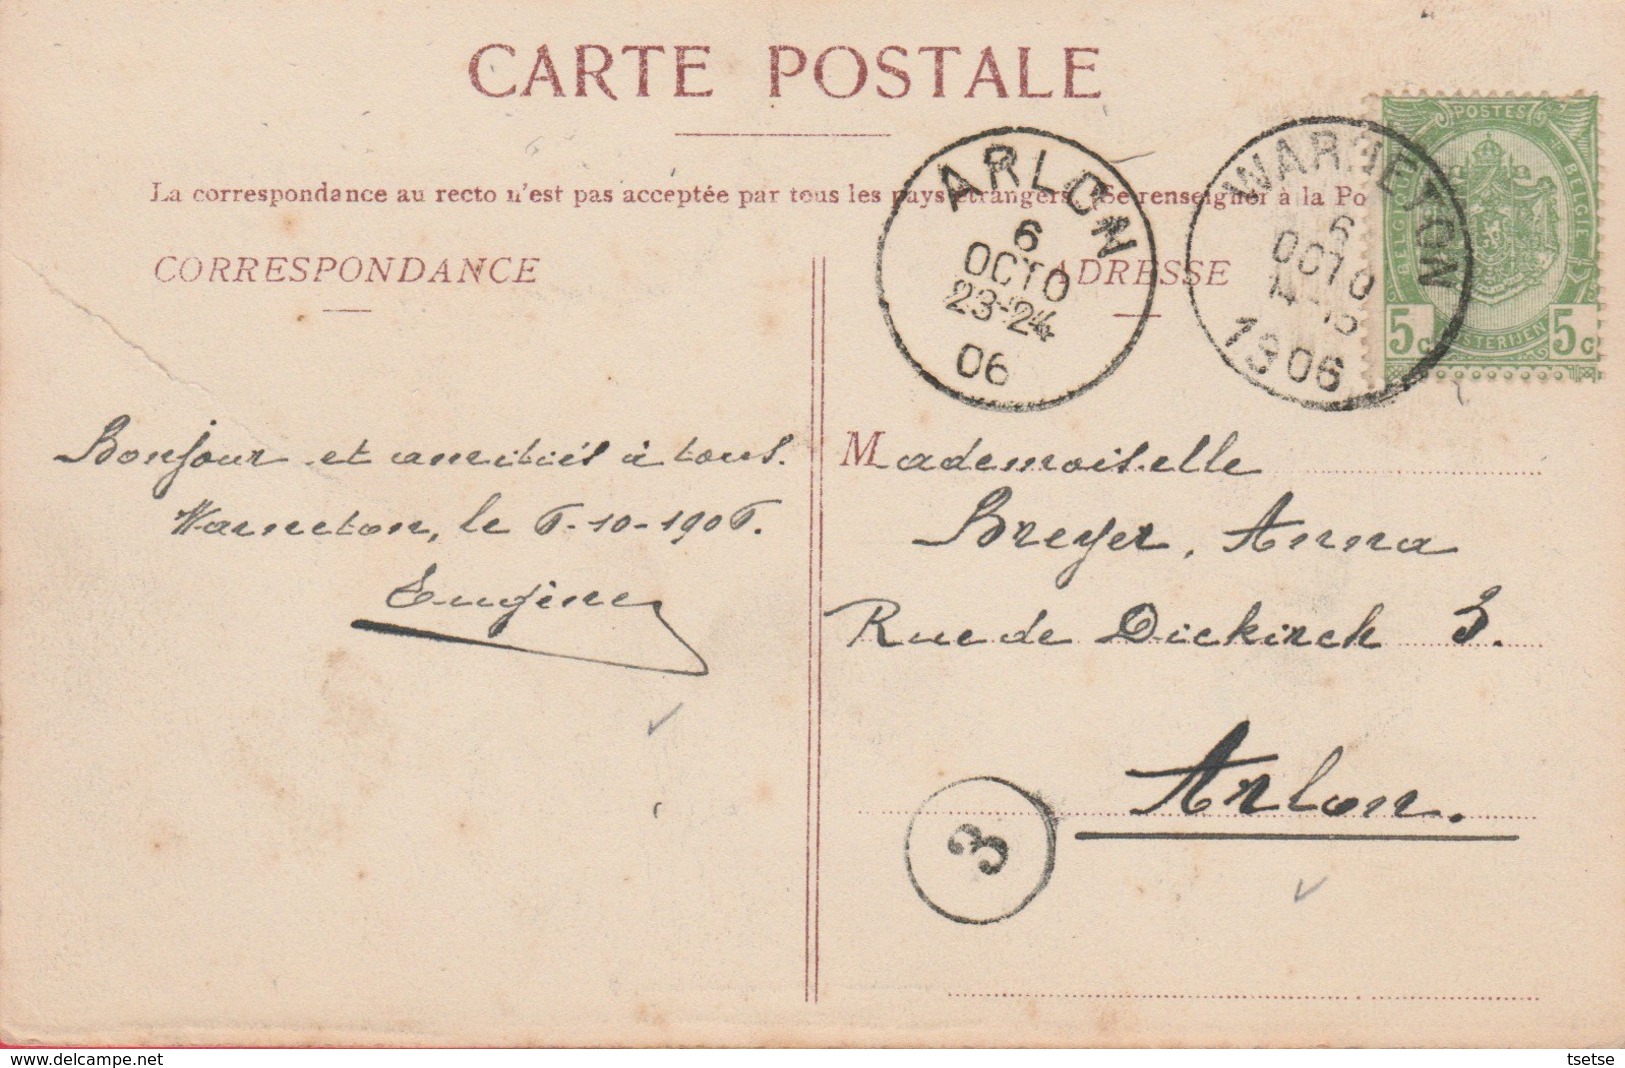 CARTE POSTALE
La correspondance au recto n'est pas acceptée par tous les pays étrangers. (Se renseigner à la Po
CORRESPONDANCE
ADRESSE
ARLON
6
OCTO
23-24
06
WARNETON
6
OCTO
1906
POSTES
BELGIQUE
BELGIE
POSTERIJEN
5c
5c
Bonjour et amitiés à tous.
Warneton, le 6-10-1906.
Eugène
Mademoiselle
Breyer, Anna
Rue de Diekirch 3.
Arlon.
3
www.delcampe.net
tsetse